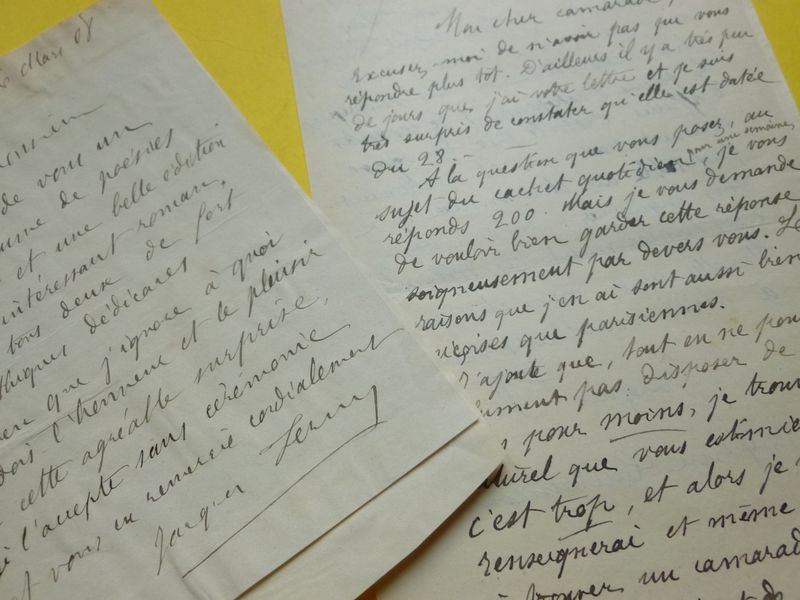 Mars 08
de vous un
de poésies
et une belle édition
intéressant roman.
tous deux de fort
dédicaces
que j'ignore à quoi
dois l'honneur et le plaisir
cette agréable surprise,
l'accepte sans cérémonie
et vous en remercie cordialement
Jacques
Mon cher camarade,
Excusez-moi de n'avoir pas que vous
répondre plus tôt. D'ailleurs il y a très peu
de jours que j'ai votre lettre et je suis
très surpris de constater qu'elle est datée
du 28.
A la question que vous posez, au
sujet du cachet quotidien, pour une semaine, je vous
réponds 200. Mais je vous demande
de vouloir bien garder cette réponse
soigneusement par devers vous. Les
raisons que j'en ai sont aussi bien
que parisiennes.
J'ajoute que, tout en ne
pas disposer de
pour moins, je
que vous
c'est trop, et alors je
renseignerai et même
trouver un camarad